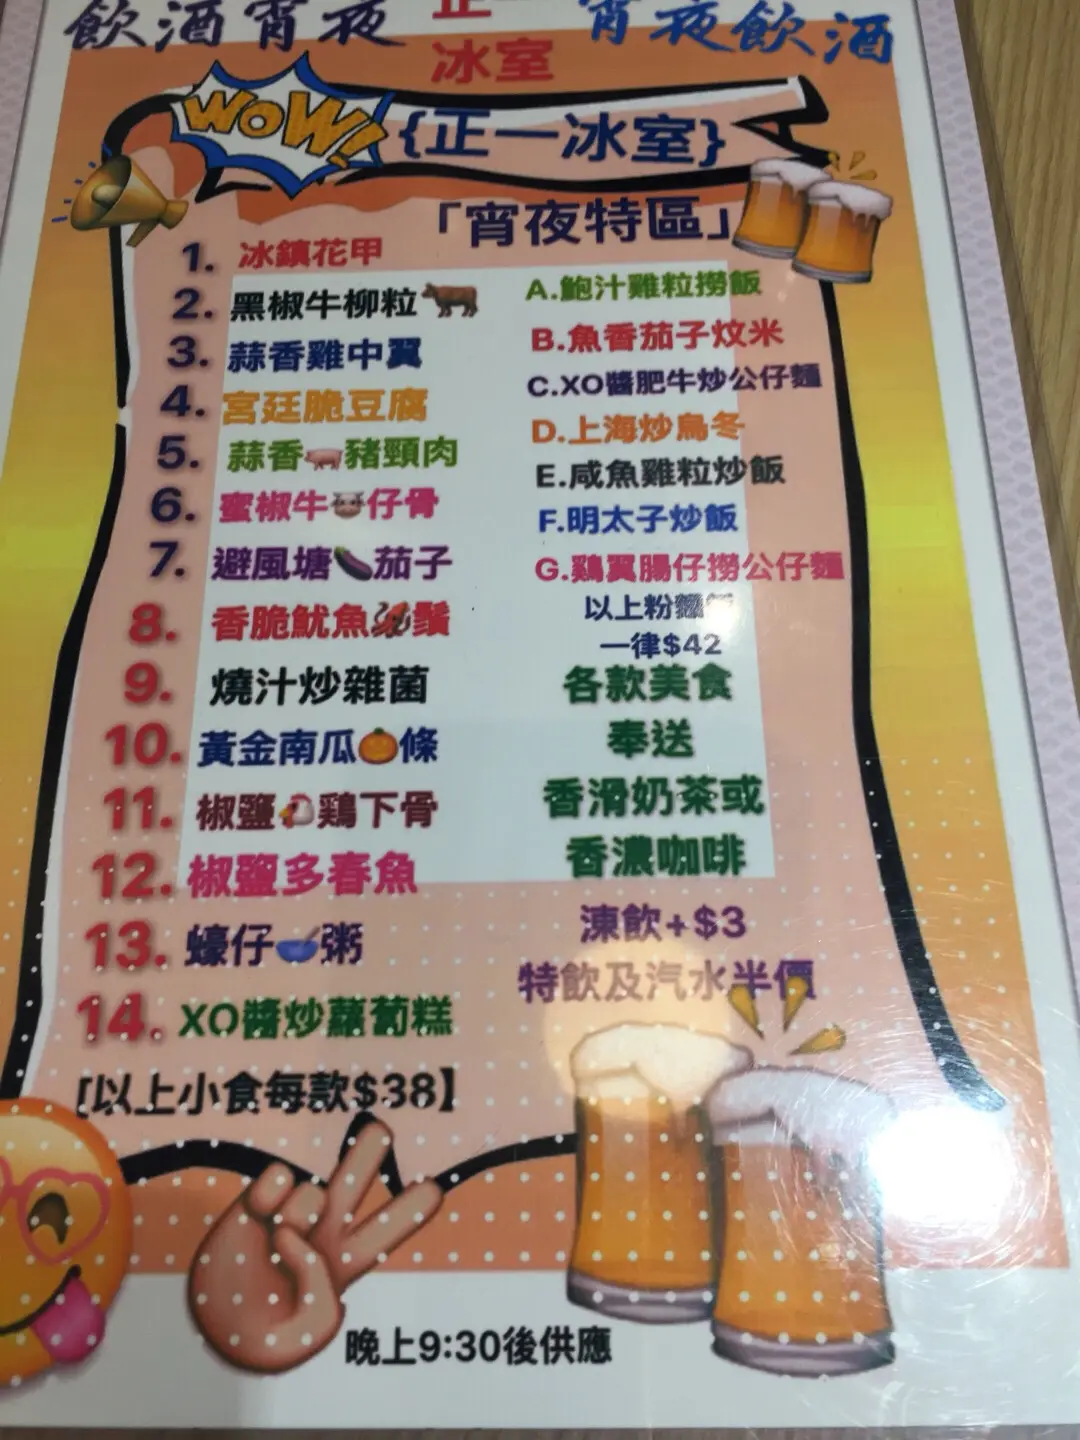 飲酒宵夜 正一 宵夜飲酒
冰室
WOW!
{正一冰室}
「宵夜特區」
1. 冰鎮花甲
2. 黑椒牛柳粒
3. 蒜香雞中翼
4. 宮廷脆豆腐
5. 蒜香豬頸肉
6. 蜜椒牛仔骨
7. 避風塘茄子
8. 香脆魷魚鬚
9. 燒汁炒雜菌
10. 黃金南瓜條
11. 椒鹽鷄下骨
12. 椒鹽多春魚
13. 蠔仔粥
14. XO醬炒蘿蔔糕
[以上小食每款$38】
A.鮑汁雞粒撈飯
B.魚香茄子炆米
C.XO醬肥牛炒公仔麵
D.上海炒烏冬
E.咸魚雞粒炒飯
F.明太子炒飯
G.鷄翼腸仔撈公仔麵
以上粉麵
一律$42
各款美食
奉送
香滑奶茶或
香濃咖啡
凍飲+$3
特飲及汽水半價
晚上9:30後供應